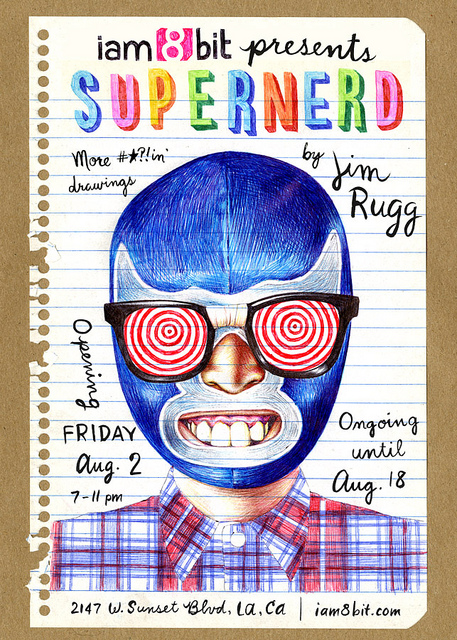 iam8bit presents
SUPERNERD
More #★?!in'
drawings
by Jim
Rugg
Opening
FRIDAY
Aug. 2
7-11 pm
Ongoing
until
Aug. 18
2147 W. Sunset Blvd, LA, Ca | iam8bit.com